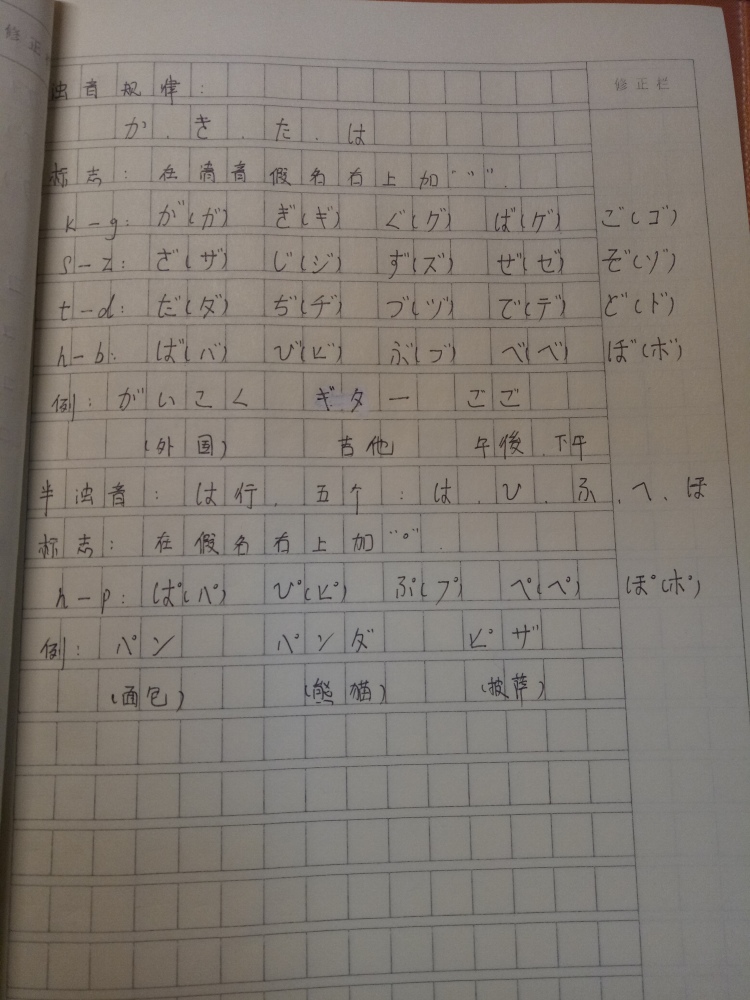 修正栏
浊音规律：
か、き、た、は
标志：在清音假名右上加“〃”.
k－g：が(ガ) ぎ(ギ) ぐ(グ) ば(ゲ) ご(ゴ)
s－z：ざ(ザ) じ(ジ) ず(ズ) ぜ(ゼ) ぞ(ゾ)
t－d：だ(ダ) ぢ(ヂ) づ(ヅ) で(デ) ど(ド)
h－b：ば(バ) び(ビ) ぶ(ブ) べ(ベ) ぼ(ボ)
例：がいこく ギター ごご
(外国) 吉他 午後、下午
半浊音：は行、五个：は、ひ、ふ、へ、ほ
标志：在假名右上加“°”.
h－p：ぱ(パ) ぴ(ピ) ぷ(プ) ぺ(ペ) ぽ(ポ)
例：パン パンダ ピザ
(面包) (熊猫) (披萨)